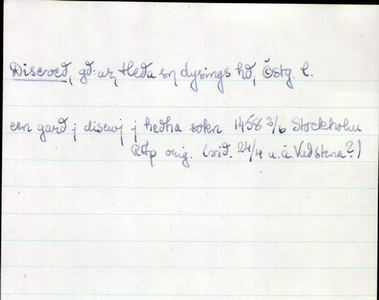 Diseved, gd:ar, Heda sn dysings hd, Östg. l.
een gard j disewj j hedha sokn 1458 3/6 Stockholm
RAp orig. (vid. 24/4 u.å. Vadstena?)